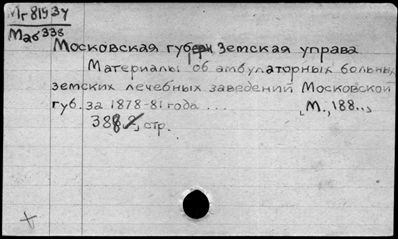 Мг 819 34
Маб 338
Московская губерн Земская управа
Материалы об амбулаторных больных
земских лечебных заведений Московской
губ. за 1878-81 года ... М., 188..,
388, стр.